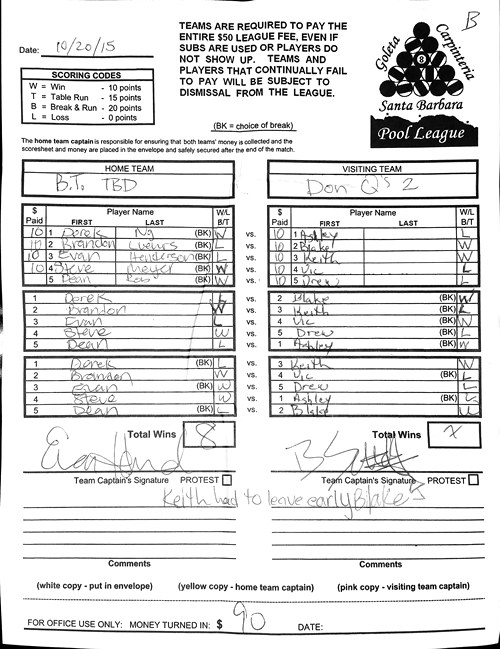 B
Date: 10/20/15
TEAMS ARE REQUIRED TO PAY THE
ENTIRE $50 LEAGUE FEE, EVEN IF
SUBS ARE USED OR PLAYERS DO
NOT SHOW UP. TEAMS AND
PLAYERS THAT CONTINUALLY FAIL
TO PAY WILL BE SUBJECT TO
DISMISSAL FROM THE LEAGUE.
(BK = choice of break)
SCORING CODES
W = Win - 10 points
T = Table Run - 15 points
B = Break & Run - 20 points
L = Loss - 0 points
Goleta Carpinteria
8
Santa Barbara
Pool League
The home team captain is responsible for ensuring that both teams' money is collected and the
scoresheet and money are placed in the envelope and safely secured after the end of the match.
HOME TEAM VISITING TEAM
B.T. TBD Don Q's 2
$ Paid Player Name FIRST LAST W/L B/T $ Paid Player Name FIRST LAST W/L B/T
10 1 Derek Ng (BK) W vs. 10 1 Ashley L
10 2 Brandon (BK) L vs. 10 2 Blake W
10 3 Evan Henderson (BK) L vs. 10 3 Keith W
10 4 Steve Meyer (BK) W vs. 10 4 Vic L
5 Dean (BK) W vs. 10 5 Drew L
1 Derek L vs. 2 Blake (BK) W
2 Brandon W vs. 3 Keith (BK) L
3 Evan L vs. 4 Vic (BK) W
4 Steve W vs. 5 Drew (BK) L
5 Dean L vs. 1 Ashley (BK) W
1 Derek (BK) L vs. 3 Keith W
2 Brandon W vs. 4 Vic (BK) L
3 Evan (BK) W vs. 5 Drew L
4 Steve W vs. 1 Ashley (BK) L
5 Dean (BK) L vs. 2 Blake W
Total Wins 8 Total Wins 7
Team Captain's Signature PROTEST Team Captain's Signature PROTEST
Keith had to leave early Blake
Comments Comments
(white copy - put in envelope) (yellow copy - home team captain) (pink copy - visiting team captain)
FOR OFFICE USE ONLY: MONEY TURNED IN: $ 90 DATE: